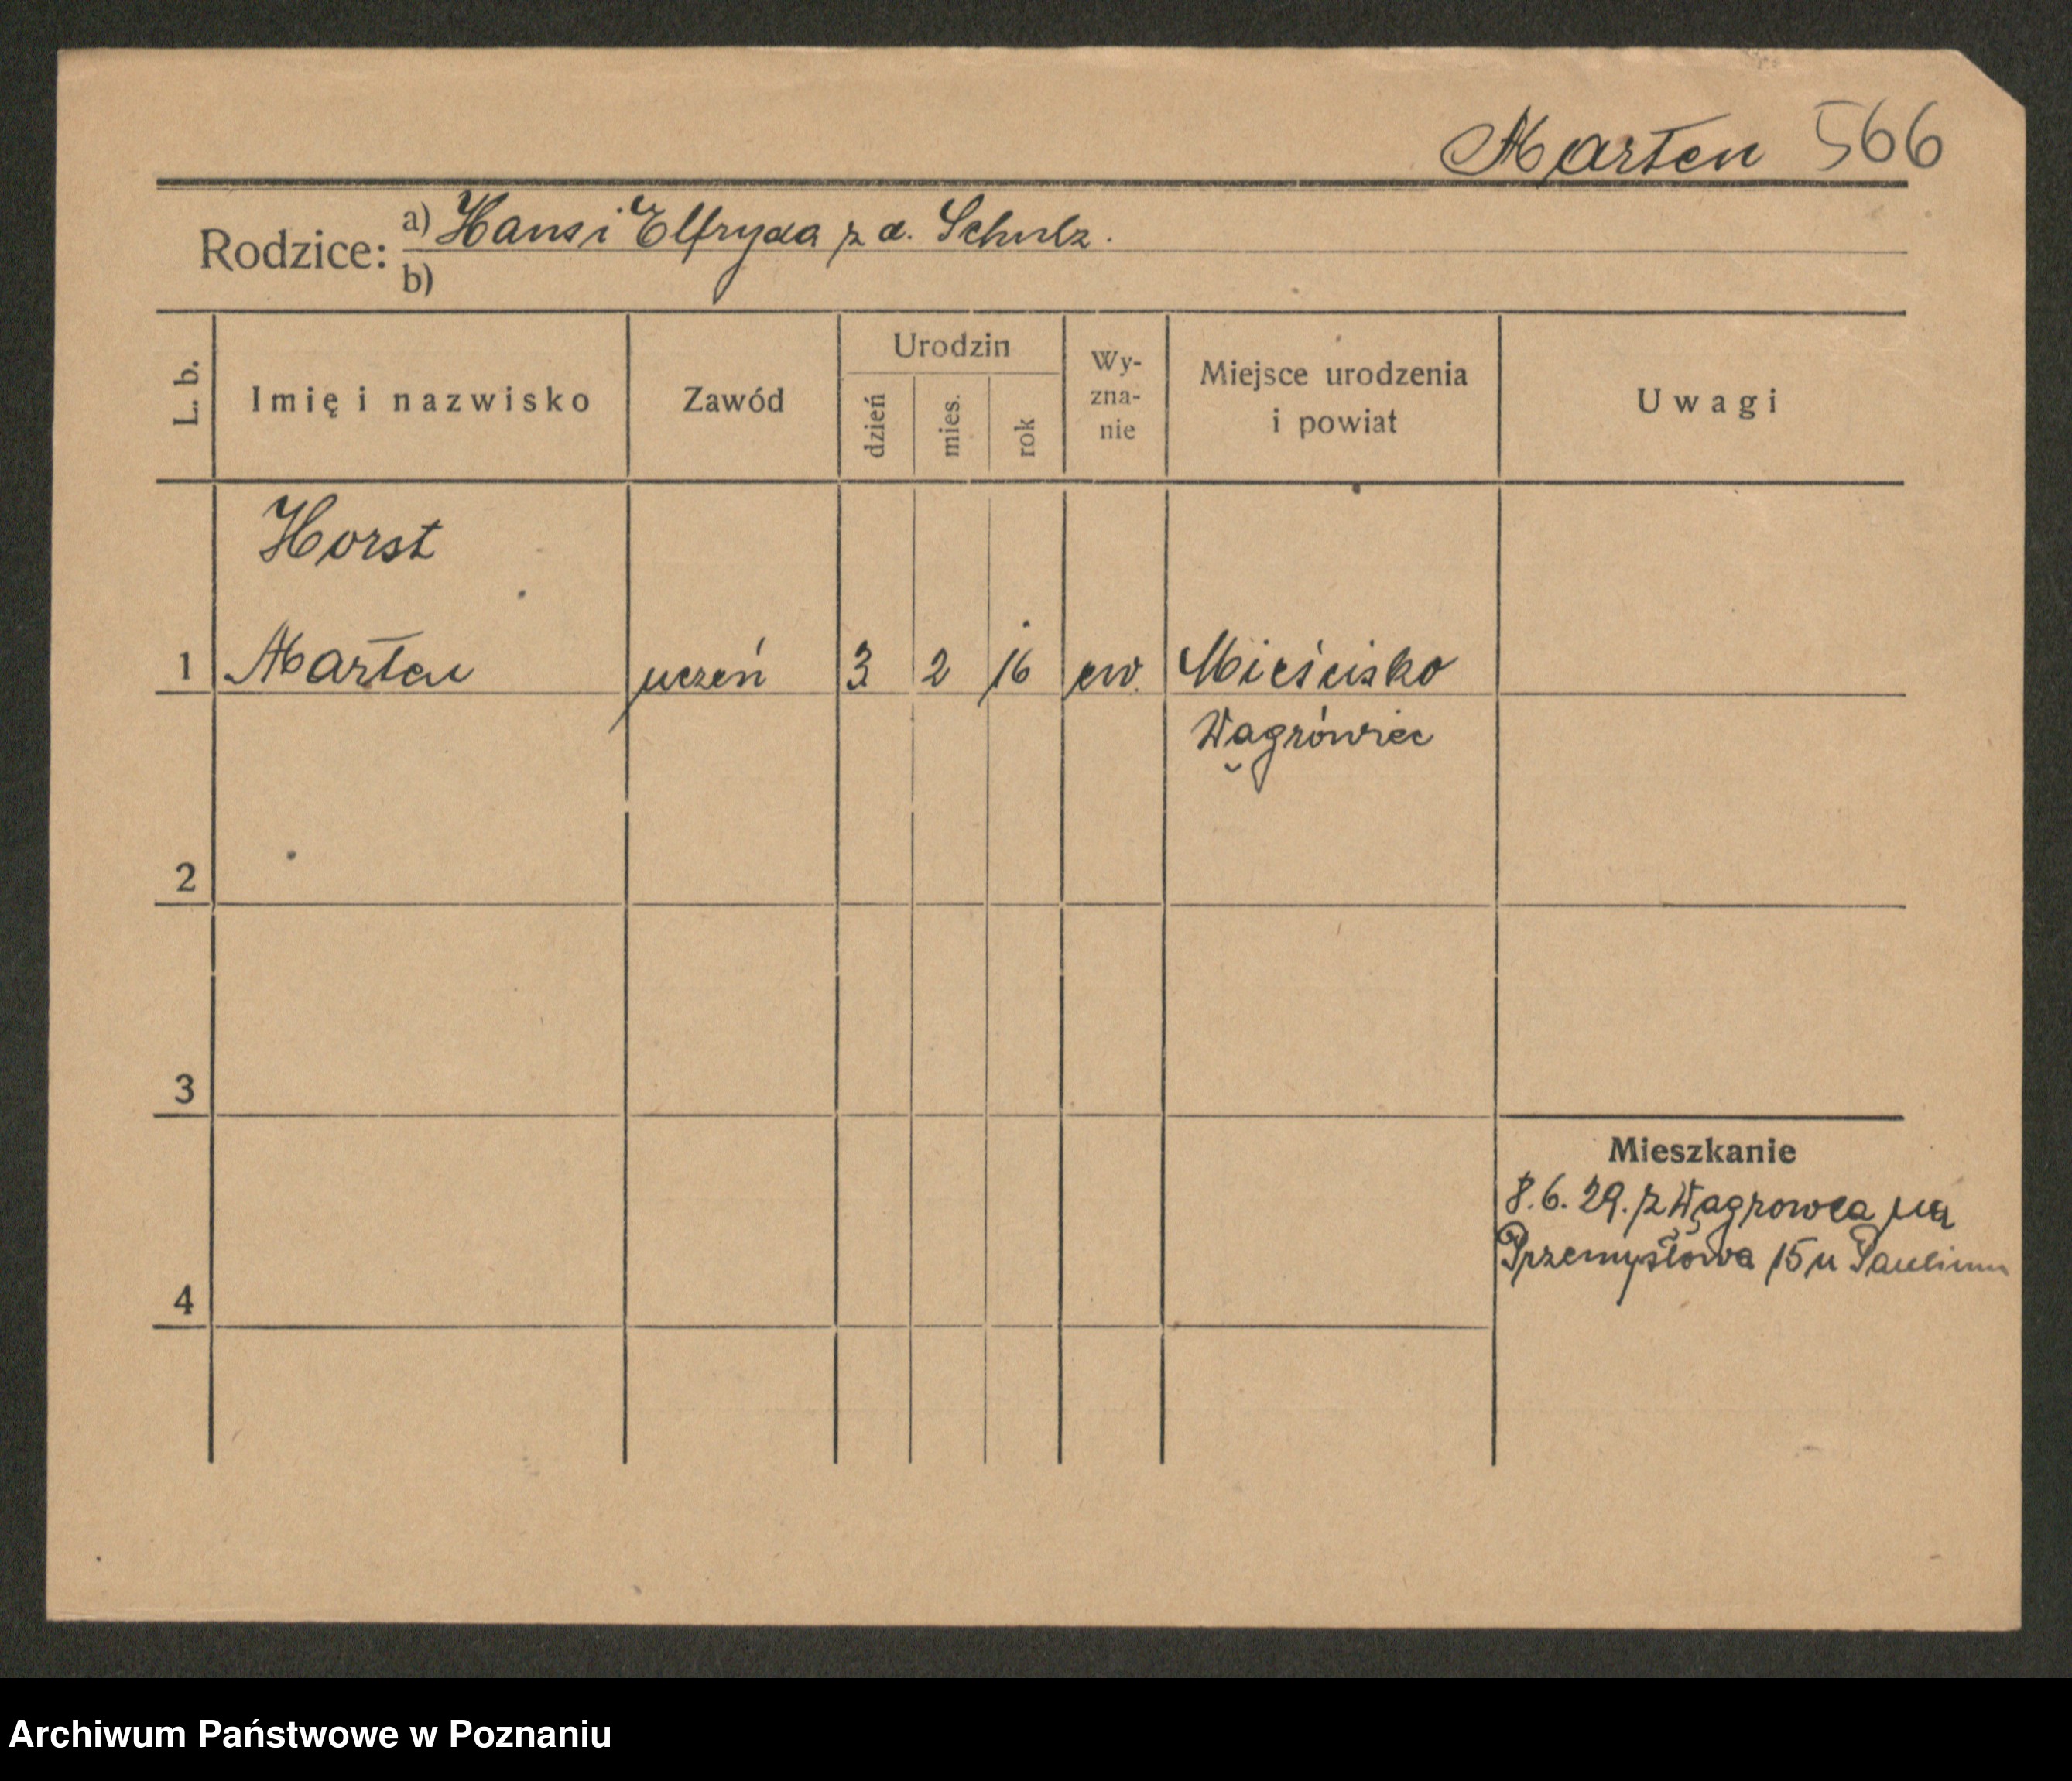 Marten 566
Rodzice: a) Hans i Elfryda z d. Schulz.
b)
L. b.
Imię i nazwisko
Zawód
Urodzin
dzień
mies.
rok
Wy-
zna-
nie
Miejsce urodzenia
i powiat
Uwagi
Horst
1 Marten uczeń 3 2 16 ew. Mieścisko
Wągrówiec
2
3
4
Mieszkanie
8.6.29. z Wągrowca na
Przemysłowa 15 u
Archiwum Państwowe w Poznaniu